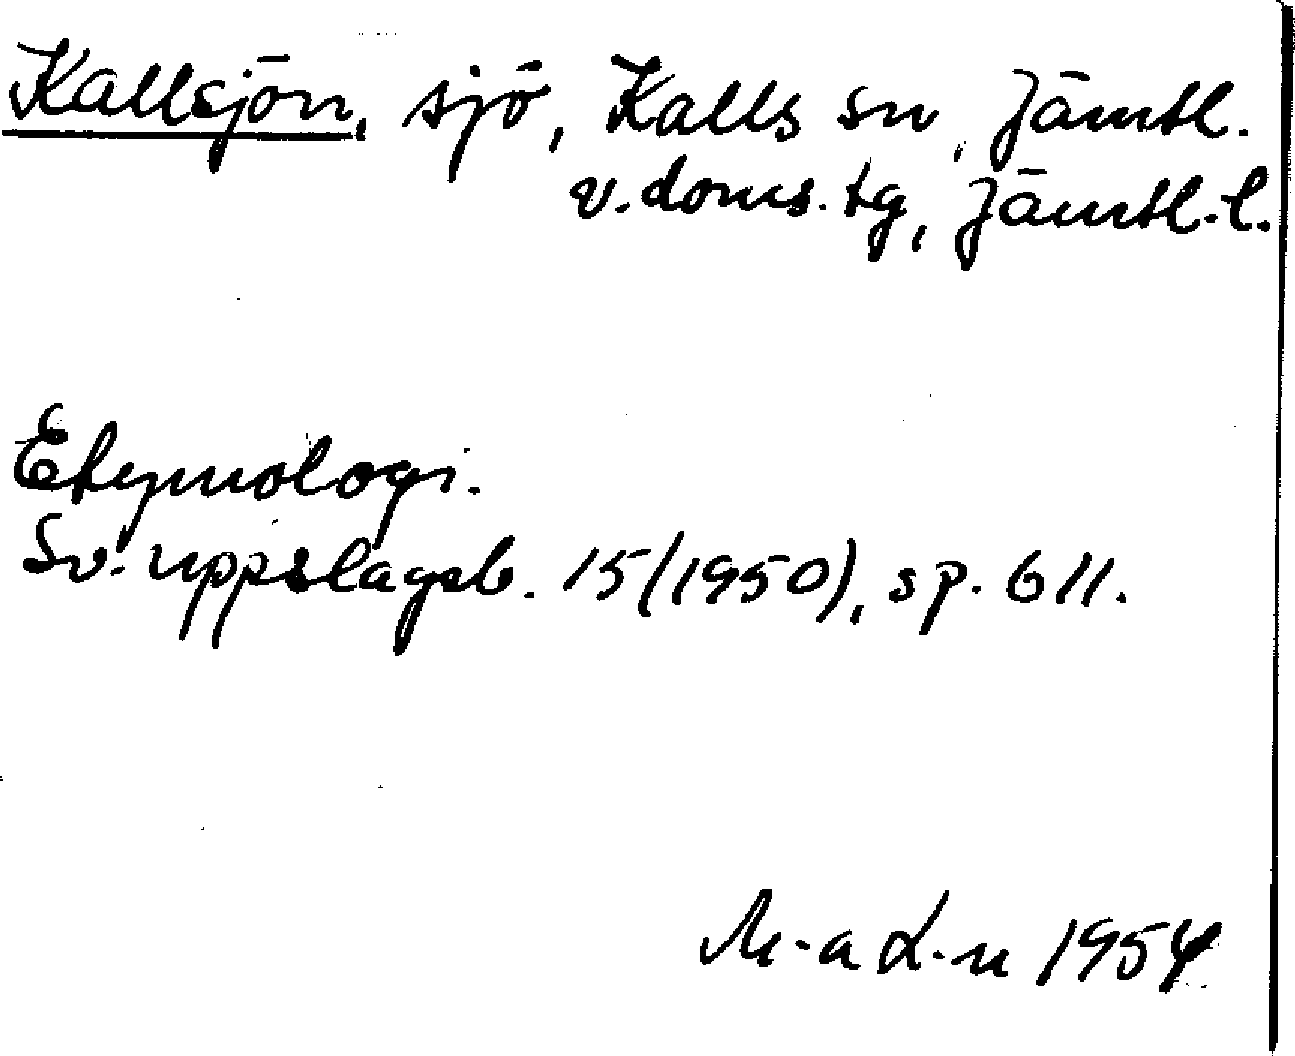 Kallsjön, sjö, Kalls sn, Jämtl.
v. doms. tg, Jämtl. l.
Etymologi.
Sv. uppslagsb. 15 (1950), sp. 611.
M-a L-n 1954